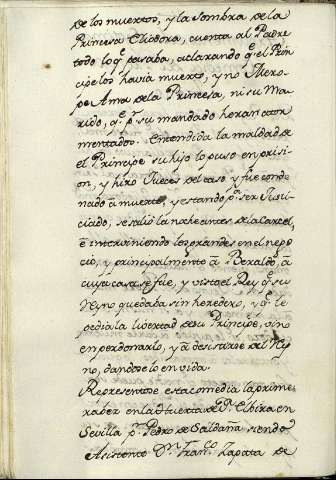 de los muertos, y la sombra de la
Princesa Eliodora, cuenta al Padre
todo lo q.e pasaba, aclarando q.e el Prin
cipe los havia muerto, y no Mero-
pe Ama de la Princesa, ni su Ma-
rido, q.e p.r su mandado heran ator
mentados. Entendida la maldad de
el Principe su hijo lo puso en prisi-
on, y hizo Jueces del caso y fue conde
nado â muerte, y estando p.a ser Justi-
ciado, se salió la noche antes de la Carcel,
è interviniendo los grandes en el nego
cio, y principalmente â Beraldo, â
cuya casa se fue, y visto el Rey q.e su
Reyno quedaba sin heredero, y q.e le
pedia la libertad de su Principe, vino
en perdonarlo, y â desistirse del Rey
no, dandoselo en vida.
Representose esta comedia la prime
ra ber en la Huerta de D.a Elvira en
Sevilla p.r Pedro de Saldaña siendo
Asistente D.n Fran.co Zapata de